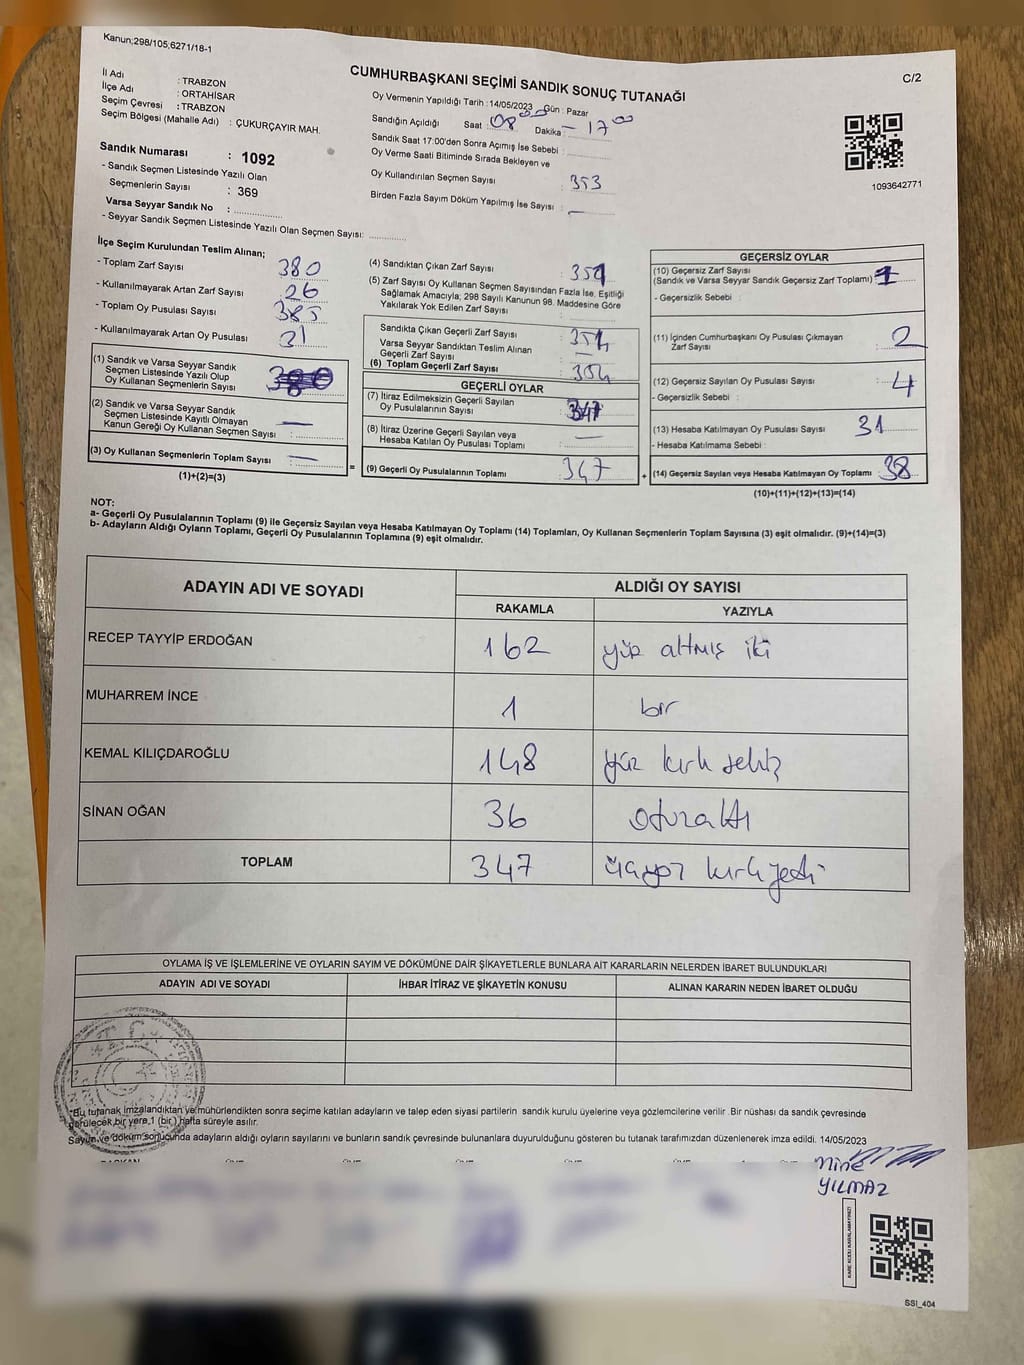 Kanun;298/105,6271/18-1
C/2
CUMHURBAŞKANI SEÇİMİ SANDIK SONUÇ TUTANAĞI
İl Adı : TRABZON
İlçe Adı : ORTAHİSAR
Seçim Çevresi : TRABZON
Seçim Bölgesi (Mahalle Adı) : ÇUKURÇAYIR MAH.
Sandık Numarası : 1092
- Sandık Seçmen Listesinde Yazılı Olan
Seçmenlerin Sayısı : 369
Varsa Seyyar Sandık No :
- Seyyar Sandık Seçmen Listesinde Yazılı Olan Seçmen Sayısı:
Oy Vermenin Yapıldığı Tarih : 14/05/2023 Gün : Pazar
Sandığın Açıldığı Saat : 08 00 Dakika : – 17 00
Sandık Saat 17:00'den Sonra Açımış İse Sebebi :
Oy Verme Saati Bitiminde Sırada Bekleyen ve
Oy Kullandırılan Seçmen Sayısı : 353
Birden Fazla Sayım Döküm Yapılmış İse Sayısı : —
1093642771
İlçe Seçim Kurulundan Teslim Alınan;
- Toplam Zarf Sayısı 380
- Kullanılmayarak Artan Zarf Sayısı 26
- Toplam Oy Pusulası Sayısı 385
- Kullanılmayarak Artan Oy Pusulası 31
(1) Sandık ve Varsa Seyyar Sandık
Seçmen Listesinde Yazılı Olup
Oy Kullanan Seçmenlerin Sayısı
(2) Sandık ve Varsa Seyyar Sandık
Seçmen Listesinde Kayıtlı Olmayan
Kanun Gereği Oy Kullanan Seçmen Sayısı : —
(3) Oy Kullanan Seçmenlerin Toplam Sayısı : —
(1)+(2)=(3)
(4) Sandıktan Çıkan Zarf Sayısı : 354
(5) Zarf Sayısı Oy Kullanan Seçmen Sayısından Fazla İse, Eşitliği
Sağlamak Amacıyla; 298 Sayılı Kanunun 98. Maddesine Göre
Yakılarak Yok Edilen Zarf Sayısı :
Sandıkta Çıkan Geçerli Zarf Sayısı : 354
Varsa Seyyar Sandıktan Teslim Alınan
Geçerli Zarf Sayısı : —
(6) Toplam Geçerli Zarf Sayısı : 354
GEÇERLİ OYLAR
(7) İtiraz Edilmeksizin Geçerli Sayılan
Oy Pusulalarının Sayısı : 347
(8) İtiraz Üzerine Geçerli Sayılan veya
Hesaba Katılan Oy Pusulası Toplamı : —
= (9) Geçerli Oy Pusulalarının Toplamı : 347 +
GEÇERSİZ OYLAR
(10) Geçersiz Zarf Sayısı
(Sandık ve Varsa Seyyar Sandık Geçersiz Zarf Toplamı) : 1
- Geçersizlik Sebebi :
(11) İçinden Cumhurbaşkanı Oy Pusulası Çıkmayan
Zarf Sayısı : 2
(12) Geçersiz Sayılan Oy Pusulası Sayısı : 4
- Geçersizlik Sebebi :
(13) Hesaba Katılmayan Oy Pusulası Sayısı : 31
- Hesaba Katılmama Sebebi :
(14) Geçersiz Sayılan veya Hesaba Katılmayan Oy Toplamı : 38
(10)+(11)+(12)+(13)=(14)
NOT:
a- Geçerli Oy Pusulalarının Toplamı (9) ile Geçersiz Sayılan veya Hesaba Katılmayan Oy Toplamı (14) Toplamları, Oy Kullanan Seçmenlerin Toplam Sayısına (3) eşit olmalıdır. (9)+(14)=(3)
b- Adayların Aldığı Oyların Toplamı, Geçerli Oy Pusulalarının Toplamına (9) eşit olmalıdır.
ADAYIN ADI VE SOYADI ALDIĞI OY SAYISI
RAKAMLA YAZIYLA
RECEP TAYYİP ERDOĞAN 162 yüz altmış iki
MUHARREM İNCE 1 bir
KEMAL KILIÇDAROĞLU 148 yüz kırk sekiz
SİNAN OĞAN 36 otuzaltı
TOPLAM 347 üçyüz kırkyedi
OYLAMA İŞ VE İŞLEMLERİNE VE OYLARIN SAYIM VE DÖKÜMÜNE DAİR ŞİKAYETLERLE BUNLARA AİT KARARLARIN NELERDEN İBARET BULUNDUKLARI
ADAYIN ADI VE SOYADI İHBAR İTİRAZ VE ŞİKAYETİN KONUSU ALINAN KARARIN NEDEN İBARET OLDUĞU
*Bu tutanak imzalandıktan ve mühürlendikten sonra seçime katılan adayların ve talep eden siyasi partilerin sandık kurulu üyelerine veya gözlemcilerine verilir. Bir nüshası da sandık çevresinde
görülecek bir yere,1 (bir) hafta süreyle asılır.
Sayım ve döküm sonucunda adayların aldığı oyların sayılarını ve bunların sandık çevresinde bulunanlara duyurulduğunu gösteren bu tutanak tarafımızdan düzenlenerek imza edildi. 14/05/2023
Mine
YILMAZ
KARE KODU KARALAMAYINIZ!
SSI_404